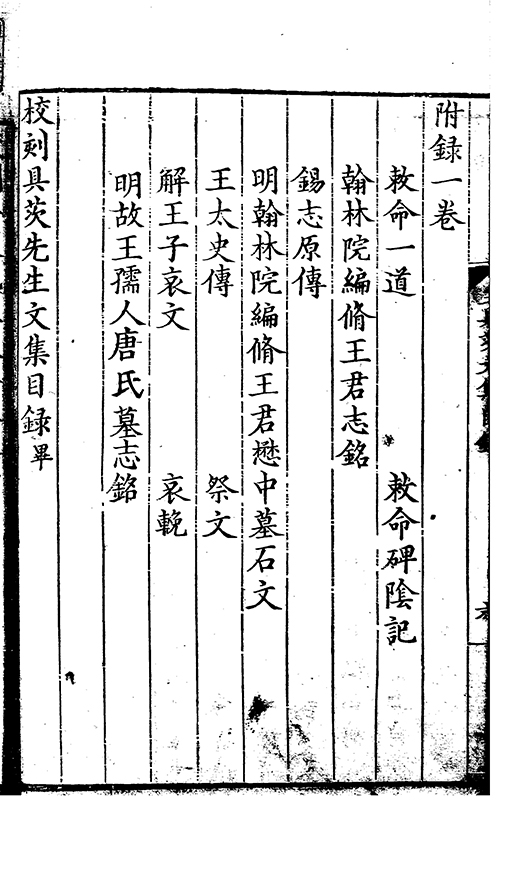 附録一卷
敕命一道　敕命碑陰記
翰林院編脩王君志銘
錫志原傳
明翰林院編脩王君懋中墓石文
王太史傳　祭文
解王子哀文　哀輓
明故王孺人唐氏墓志銘
校刻具茨先生文集目録畢